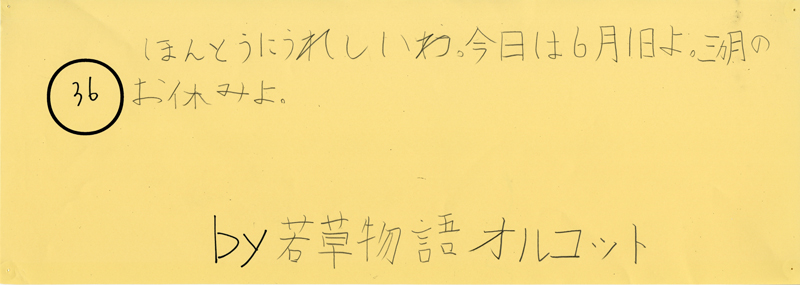 ほんとうにうれしいわ。今日は6月1日よ。三ヶ月の
36
お休みよ。
by 若草物語 オルコット